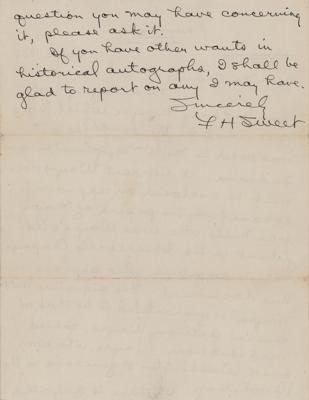 question you may have concerning
it, please ask it.
If you have other wants in
historical autographs, I shall be
glad to report on any I may have.
Sincerely
F H Sweet